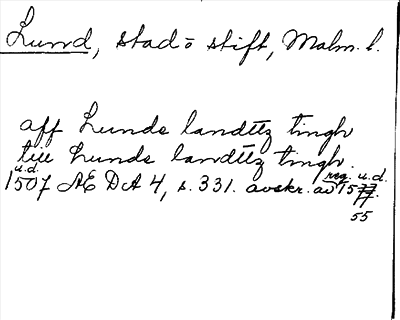 Lund, stad o stift, Malm. l.
aff Lunds landztz tingh
till Lunds landztz tingh.
u.d.
1507 ÆDA 4, s. 331. avskr. av reg. u.d. 1577.
55